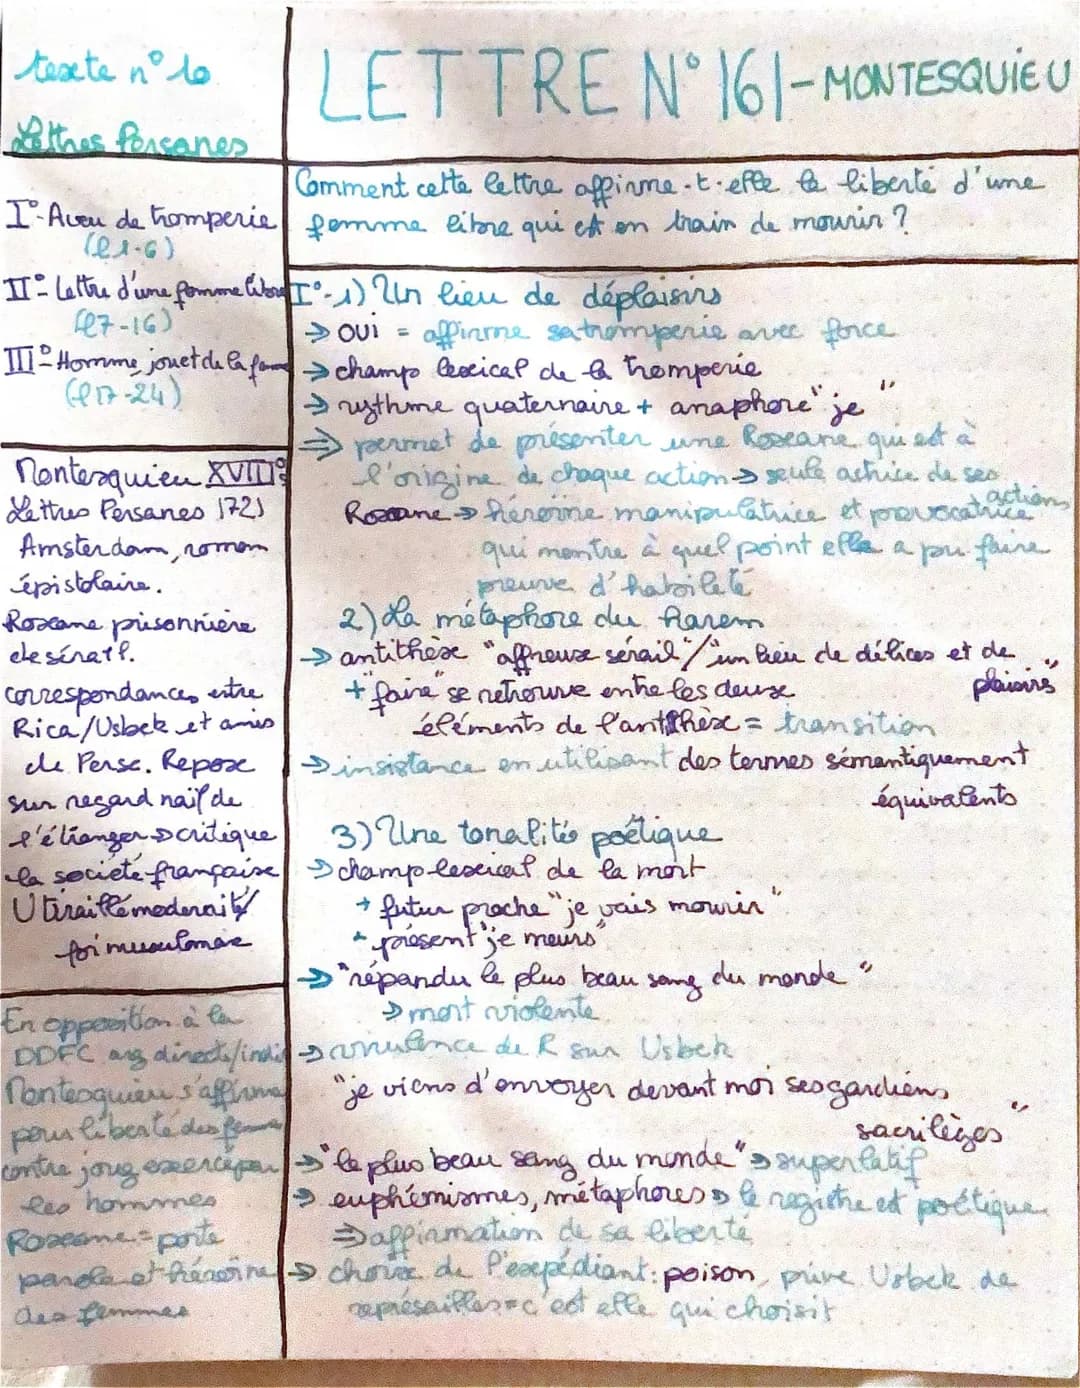 texte n° 10
Lettres Persanes
LETTRE N° 161 - MONTESQUIEU
I° - Aveu de tromperie
(l 1-6)
II° - Lettre d'une femme libre
(l 7-16)
III° - Homme, jouet de la femme
(l 17-24)
Montesquieu XVIII°s
Lettres Persanes 1721
Amsterdam, roman
épistolaire.
Roxane prisonnière
de sérail.
correspondances entre
Rica/Usbek et amis
de Perse. Repose
sur regard naïf de
l'étranger → critique
la société française
U tiraillé modernité/
foi musulmane
En opposition à la
DDFC arg directe/indi
Montesquieu s'affirme
pour liberté des femmes
contre joug exercé par
les hommes
Roxane = porte
parole et héroïne
des femmes
Comment cette lettre affirme-t-elle la liberté d'une
femme libre qui est en train de mourir ?
I° - 1) Un lieu de déplaisirs
→ OUI = affirme sa tromperie avec force
→ champ lexical de la tromperie
→ rythme quaternaire + anaphore "je"
⇒ permet de présenter une Roxane qui est à
l'origine de chaque action → seule actrice de ses
actions
Roxane → héroïne manipulatrice et provocatrice
qui montre à quel point elle a pu faire
preuve d'habileté
2) La métaphore du harem
→ antithèse "affreux sérail"/"un lieu de délices et de
plaisirs"
+ "faire" se retrouve entre les deux
éléments de l'antithèse = transition
→ insistance en utilisant des termes sémantiquement
équivalents
3) Une tonalité poétique
→ champ lexical de la mort
+ futur proche "je vais mourir"
+ présent "je meurs"
→ "répandu le plus beau sang du monde"
→ mort violente
→ virulence de R sur Usbek
"je viens d'envoyer devant moi ses gardiens
sacrilèges"
→ "le plus beau sang du monde" → superlatif
→ euphémismes, métaphores → le registre est poétique
⇒ affirmation de sa liberté
→ choix de l'expédiant : poison, prive Usbek de
représailles = c'est elle qui choisit